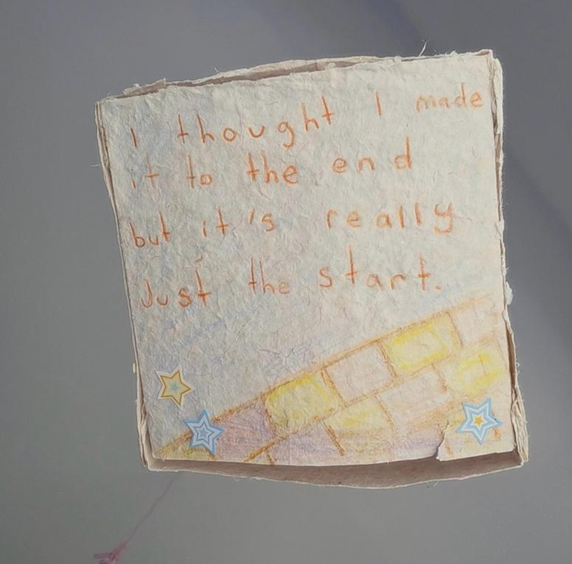 I thought I made
it to the end
but it's really
Just the start.